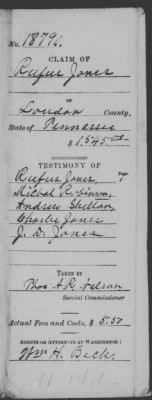 No. 18796.
CLAIM OF
Rufus Jones
OF
Loudon County,
State of Tennessee
$ 1,545.00
TESTIMONY OF
Page.
Rufus Jones,
Michael Robinson,
Andrew Shelton,
Charlie Jones
J. D. Jones
TAKEN BY
Thos A. R. Nelson
Special Commissioner
Actual Fees and Costs, $ 5.50
AGENTS OR ATTORNEYS AT WASHINGTON:
Wm H. Beck